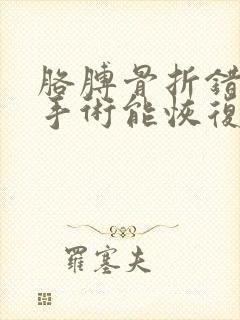 胳膊骨折錯
手術能恢復
羅塞夫